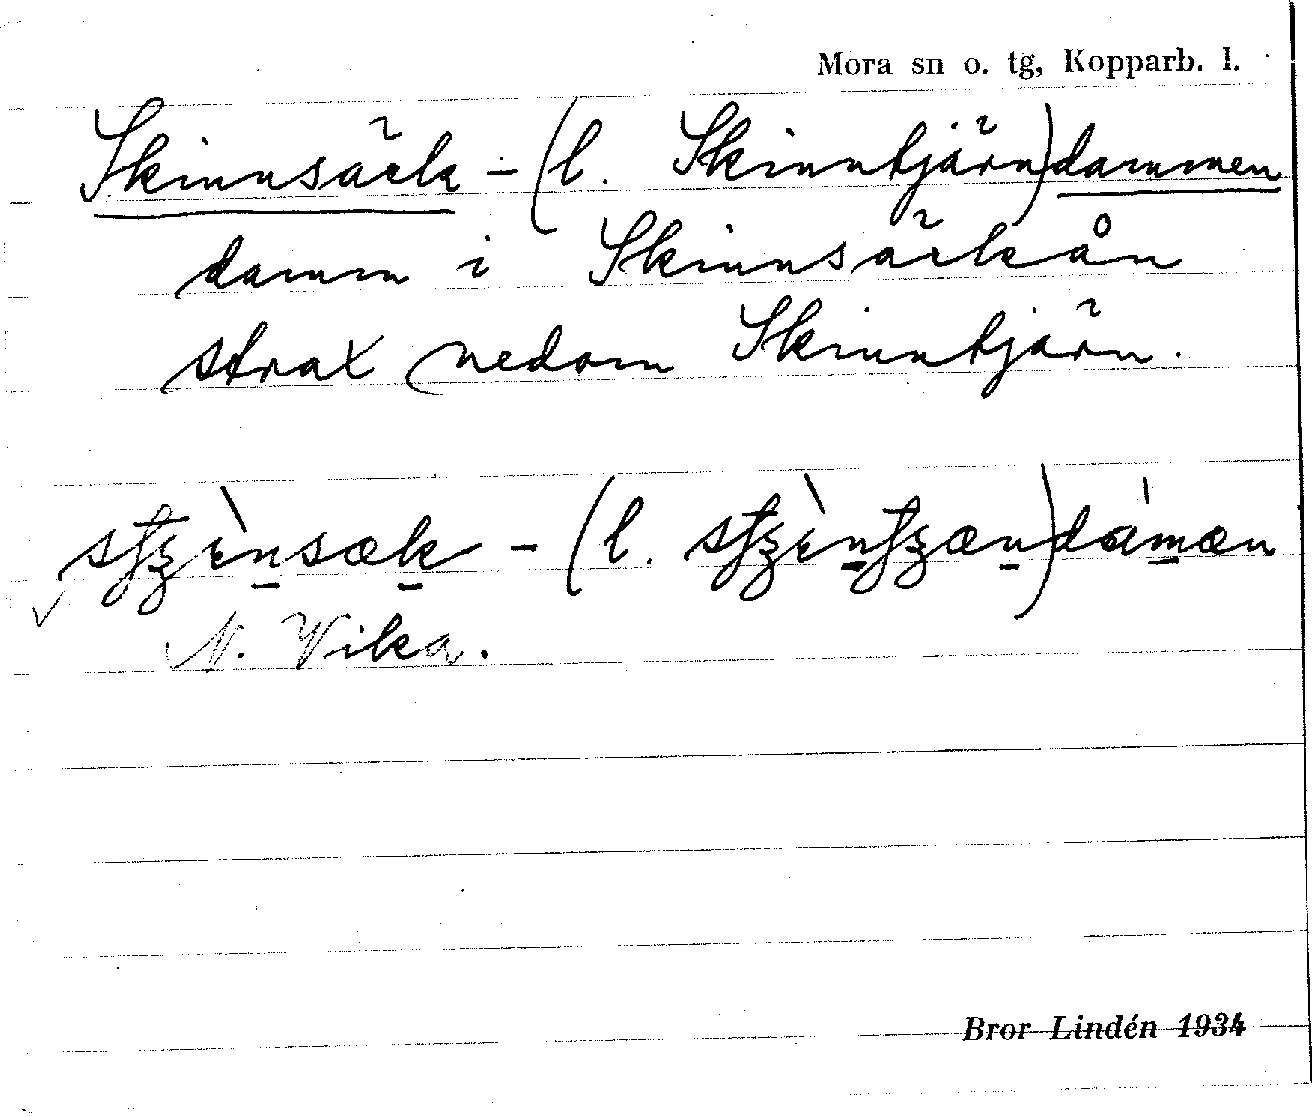 Mora sn o. tg, Kopparb. l.
Skinnsäck-(l. Skinntjärn)dammen
damm i Skinnsäckån
strax nedom Skinntjärn.
N. Vika.
Bror Lindén 1934